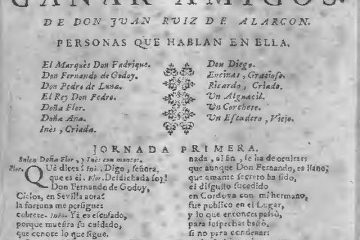 GANAR AMIGOS.
DE DON JUAN RUIZ DE ALARCON.
PERSONAS QUE HABLAN EN ELLA.
El Marquès Don Fadrique.
Don Fernando de Godoy.
Don Pedro de Luna.
El Rey Don Pedro.
Doña Flor.
Doña Ana.
Inès, Criada.
Don Diego.
Encinas, Gracioso.
Ricardo, Criado.
Un Alguacil.
Un Corchete.
Un Escudero, Viejo.
JORNADA PRIMERA.
Salen Doña Flor, y Inès con mantos.
Flor. Què dices? Inès. Digo, señora,
que es el. Flor. Desdichada soy!
Don Fernando de Godoy,
Cielos, en Sevilla aora!
la fortuna me persigue:
cubrete. Inès. Yà es escusado,
porque muestra su cuidado,
que conoce lo que sigue.
nada, al fin, se ha de ocultar:
que aunque Don Fernando, es llano,
que amante secreto ha sido,
el disgusto sucedido
en Cordova con mi hermano,
fue publico en el Lugar,
y lo que entonces passò,
para sospechas bastò,
si no para condenar: